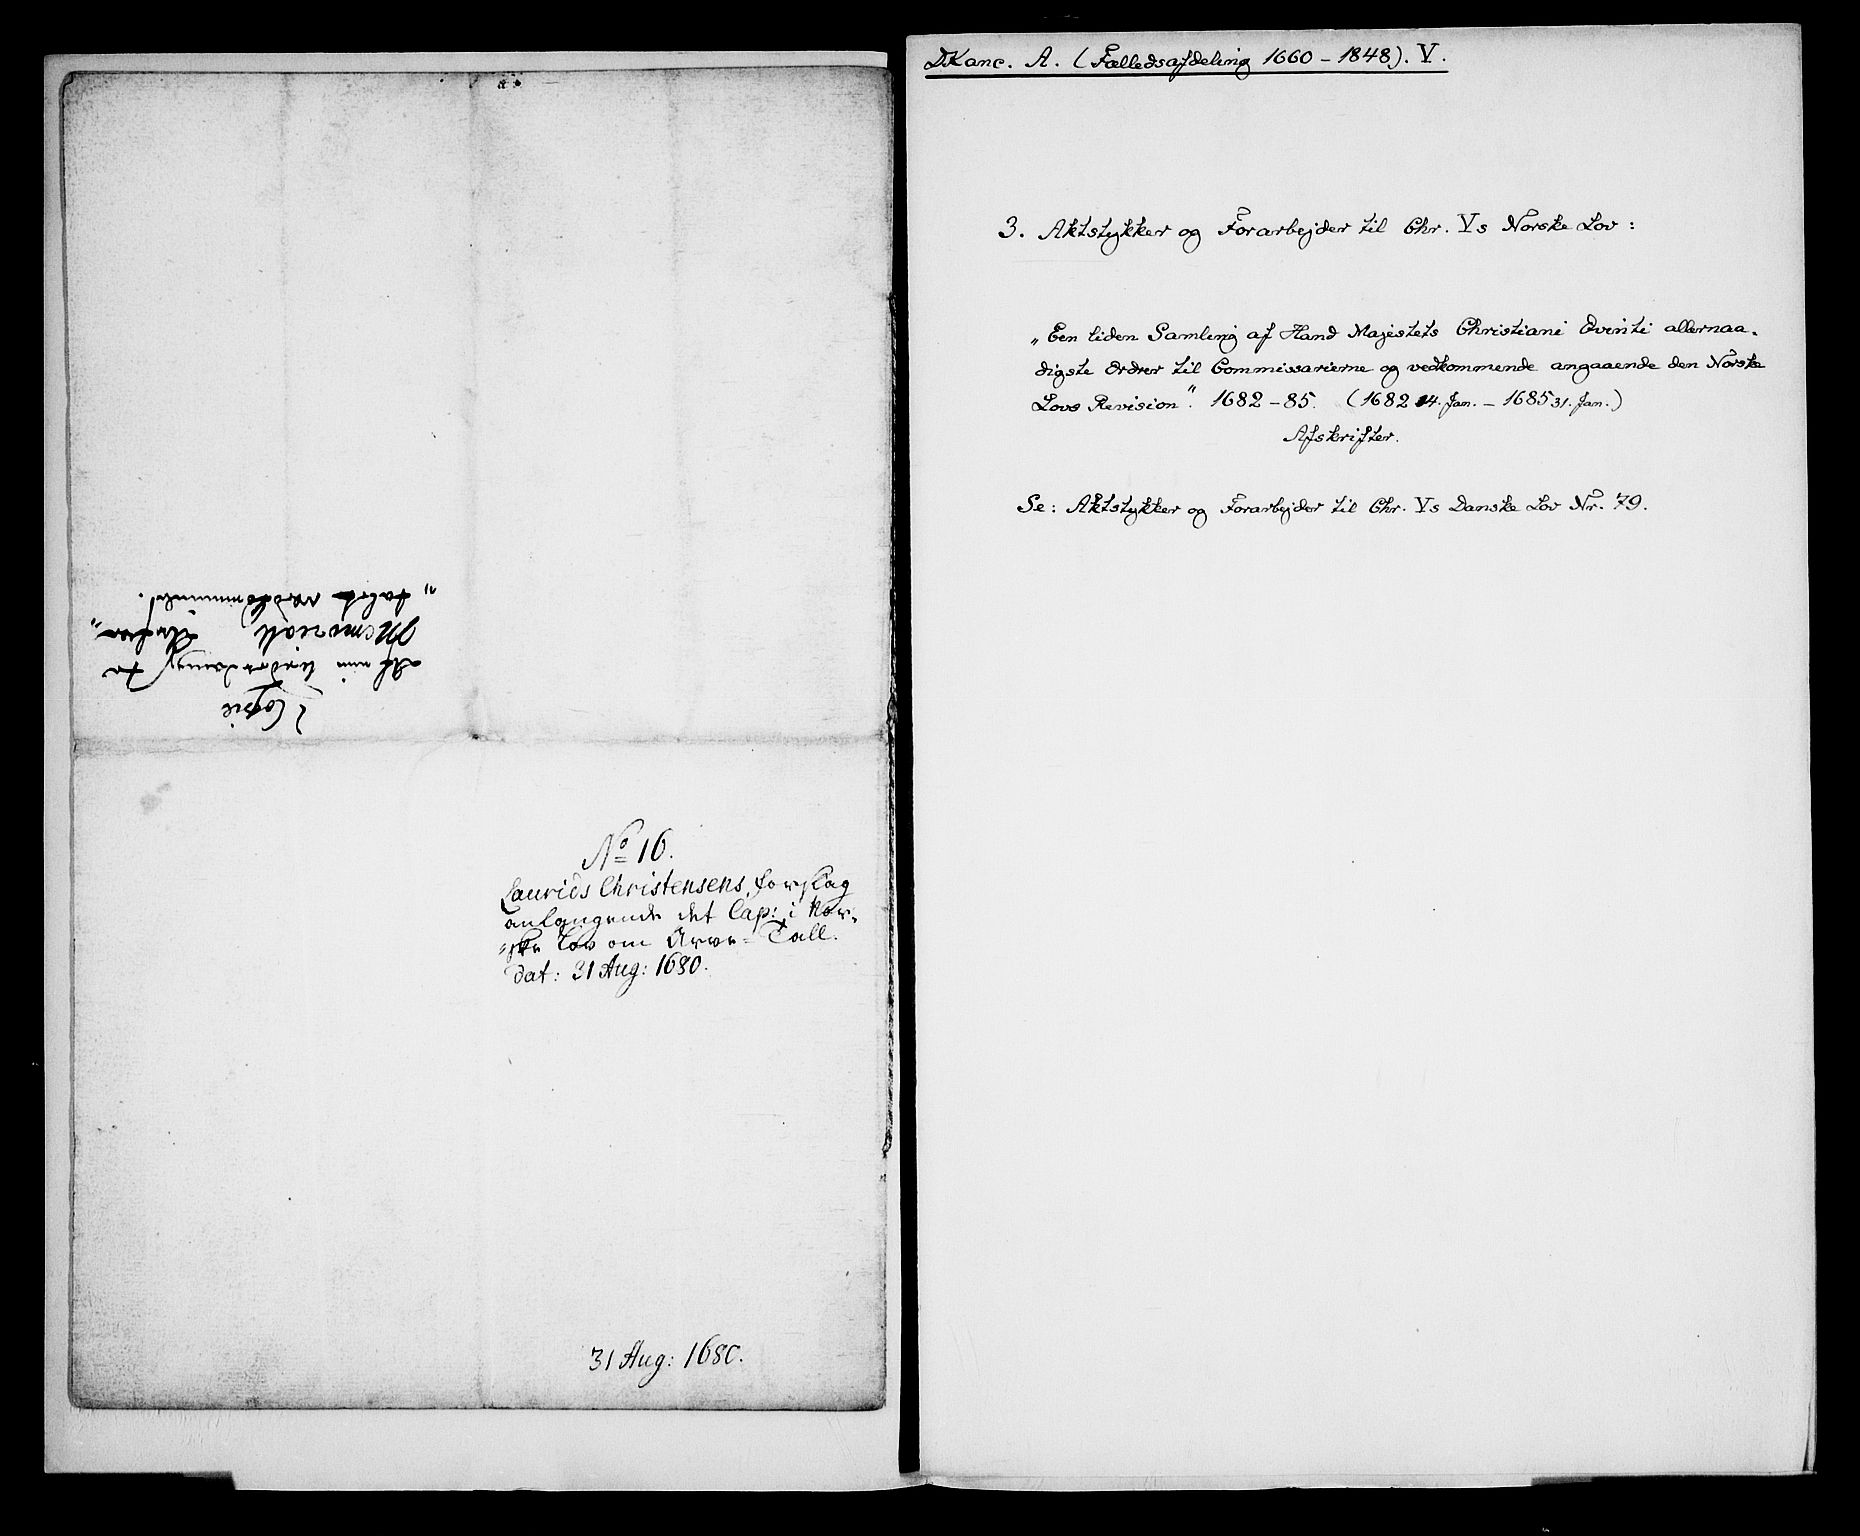 Copie
Af min underdanigste
Memoriall
No 16.
Laurids Christensens forslag
anlangende det Cap: i Nor-
"ske Lov om Arve-Tall.
dat: 31 Aug: 1680.
31 Aug: 1680.
DKanc. A. (Fælledsafdeling 1660-1848). V.
3. Aktstykker og Forarbejder til Chr. Vs Norske Lov:
„Een liden Samling af Hand Majestets Christiani Qvinti allernaa-
digste Ordrer til Commissarierne og vedkommende angaaende den Norske
Lovs Revision". 1682-85. (1682 14. Jan. - 1685 31. Jan.)
Afskrifter.
Se: Aktstykker og Forarbejder til Chr. Vs Danske Lov Nr. 79.